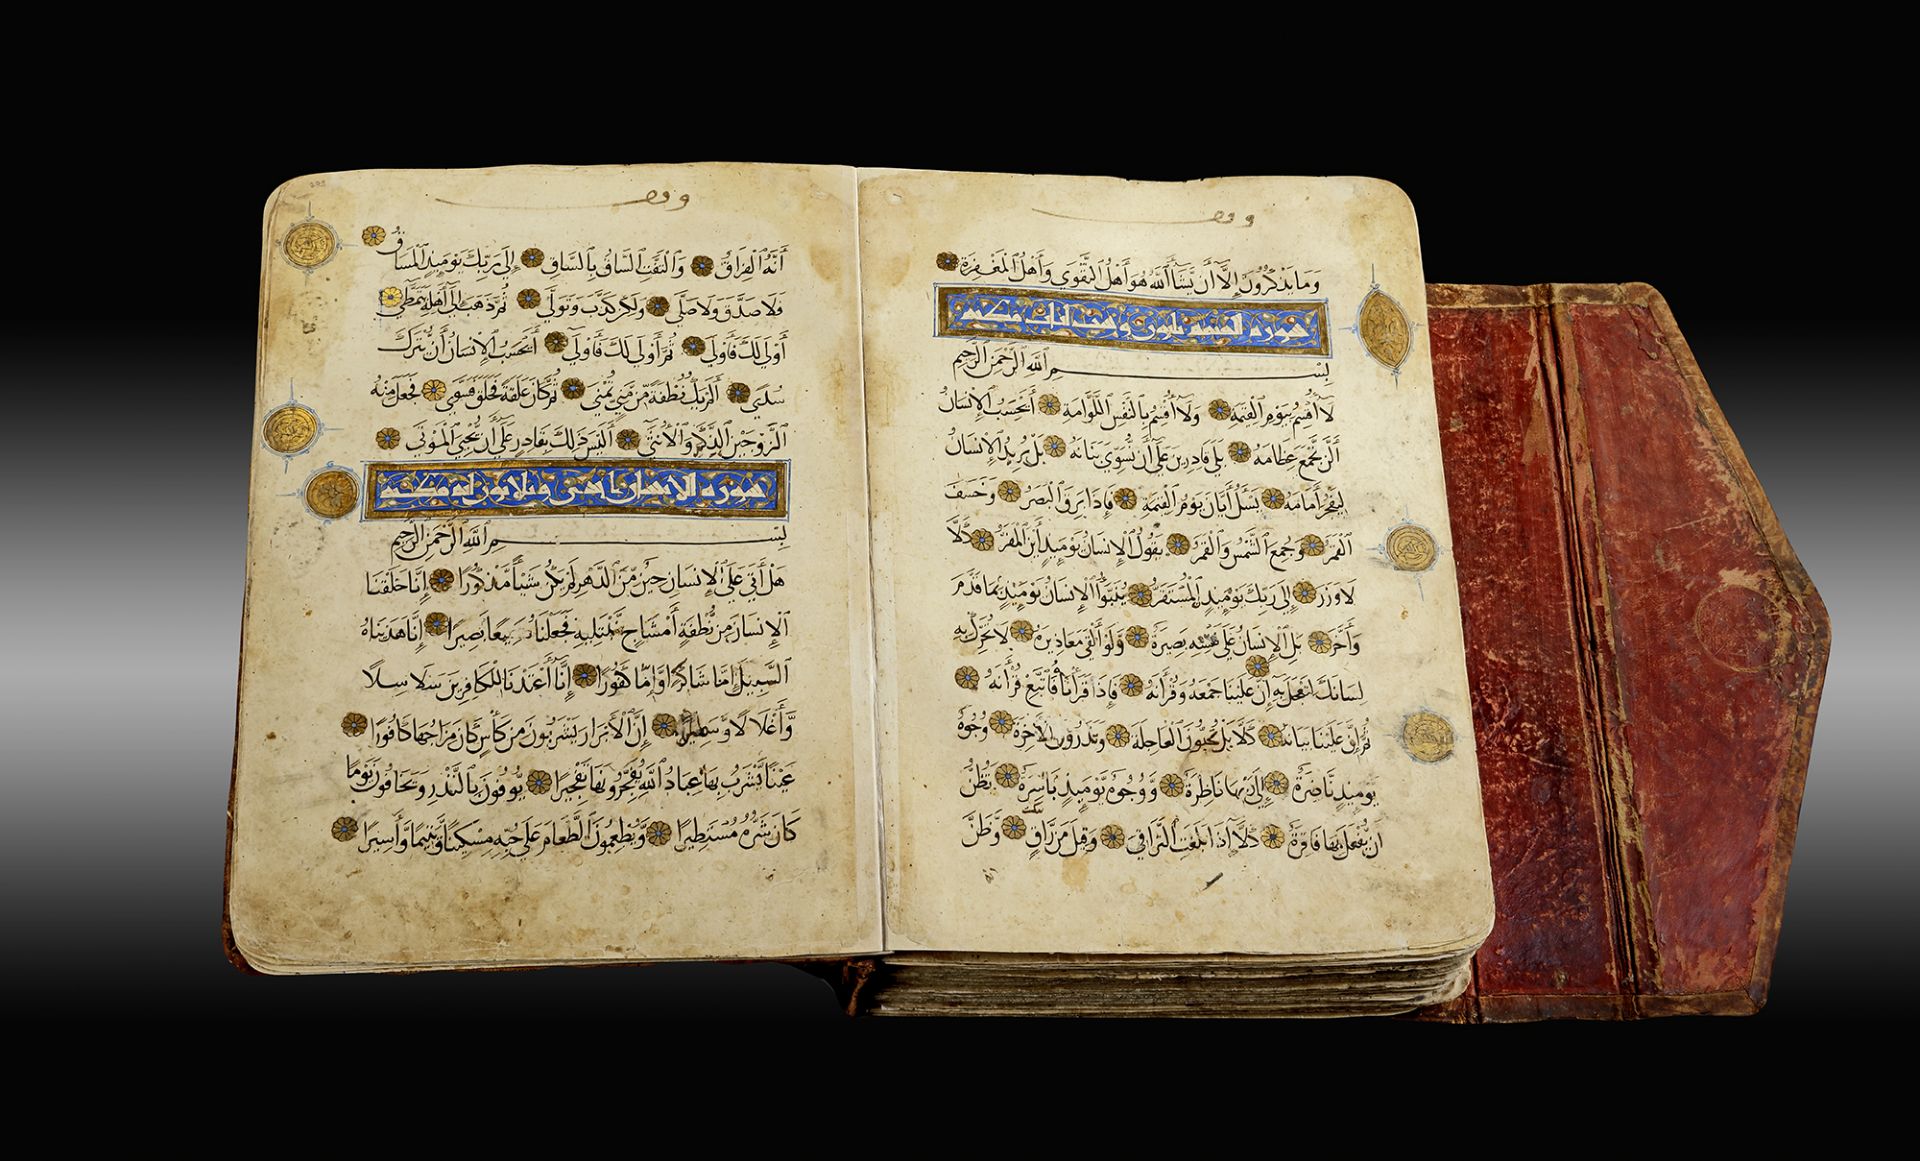 وقف
وما يذكرون إلا أن يشاء الله هو أهل التقوى وأهل المغفرة
سورة القيمة ثلثون و آيات مكية
بسم الله الرحمن الرحيم
لا أقسم بيوم القيمة ولا أقسم بالنفس اللوامة أيحسب الإنسان
ألن نجمع عظامه بلى قادرين على أن نسوي بنانه بل يريد الإنسان
ليفجر أمامه يسئل أيان يوم القيمة فإذا برق البصر وخسف
القمر وجمع الشمس والقمر يقول الإنسان يومئذ أين المفر كلا
لا وزر إلى ربك يومئذ المستقر ينبؤا الإنسان يومئذ بما قدم
وأخر بل الإنسان على نفسه بصيرة ولو ألقى معاذيره لا تحرك به
لسانك لتعجل به إن علينا جمعه وقرأنه فإذا قرأناه فاتبع قرأنه
ثم إن علينا بيانه كلا بل تحبون العاجلة وتذرون الآخرة وجوه
يومئذ ناضرة إلى ربها ناظرة ووجوه يومئذ باسرة تظن
أن يفعل بها فاقرة كلا إذا بلغت التراقي وقيل من راق وظن
وقف
أنه الفراق والتفت الساق بالساق إلى ربك يومئذ المساق
فلا صدق ولا صلى ولكن كذب وتولى ثم ذهب إلى أهله يتمطى
أولى لك فأولى ثم أولى لك فأولى أيحسب الإنسان أن يترك
سدى ألم يك نطفة من مني تمنى ثم كان علقة فخلق فسوى فجعل منه
الزوجين الذكر والأنثى أليس ذلك بقادر على أن يحيي الموتى
سورة الإنسان إحدى وثلاثون آية مكية
بسم الله الرحمن الرحيم
هل أتى على الإنسان حين من الدهر لم يكن شيأ مذكورا إنا خلقنا
الإنسان من نطفة أمشاج نبتليه فجعلناه سميعا بصيرا إنا هديناه
السبيل إما شاكرا وإما كفورا إنا أعتدنا للكافرين سلاسلا
وأغلالا وسعيرا إن الأبرار يشربون من كأس كان مزاجها كافورا
عينا يشرب بها عباد الله يفجرونها تفجيرا يوفون بالنذر ويخافون يوما
كان شره مستطيرا ويطعمون الطعام على حبه مسكينا ويتيما وأسيرا